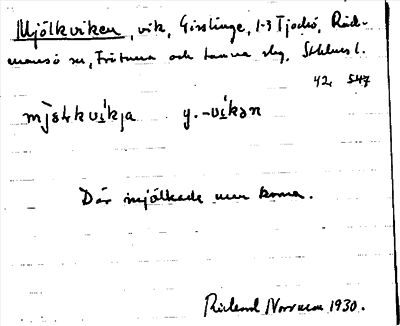 Mjölkviken, vik, Gisslinge, 1-3 Tjockö, Råd-
mansö sn, Frötuna och Länna slg, Sthlms l.
42, 547
mjø̀lkvíkja y. -víkən
Där mjölkade man korna.
Rickard 1930.